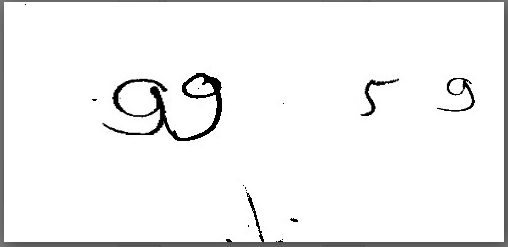 99 59